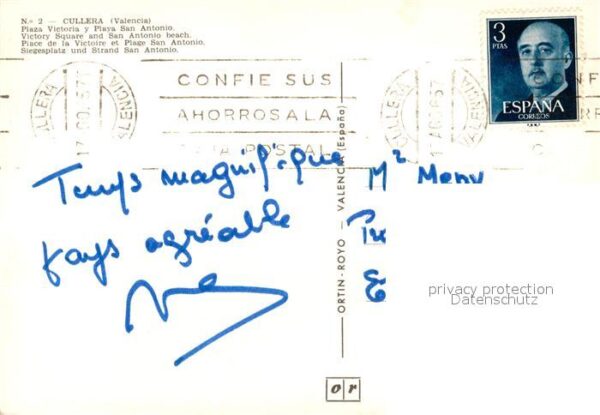 N.º 2 - CULLERA (Valencia)
Plaza Victoria y Playa San Antonio.
Victory Square and San Antonio beach.
Place de la Victoire et Plage San Antonio.
Siegesplatz und Strand San Antonio.
3
PTAS
ESPAÑA
CORREOS
CULLERA
VALENCIA
CONFIE SUS
AHORROS A LA
POSTAL
CULLERA
VALENCIA
Temps magnifique
Pays agréable
ORTIN - ROYO - VALENCIA (España)
privacy protection
Datenschutz
or